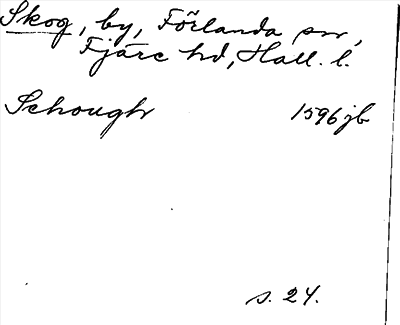 Skog, by, Förlanda sn,
Fjäre hd, Hall. l.
Schough 1596 jb
s. 24.